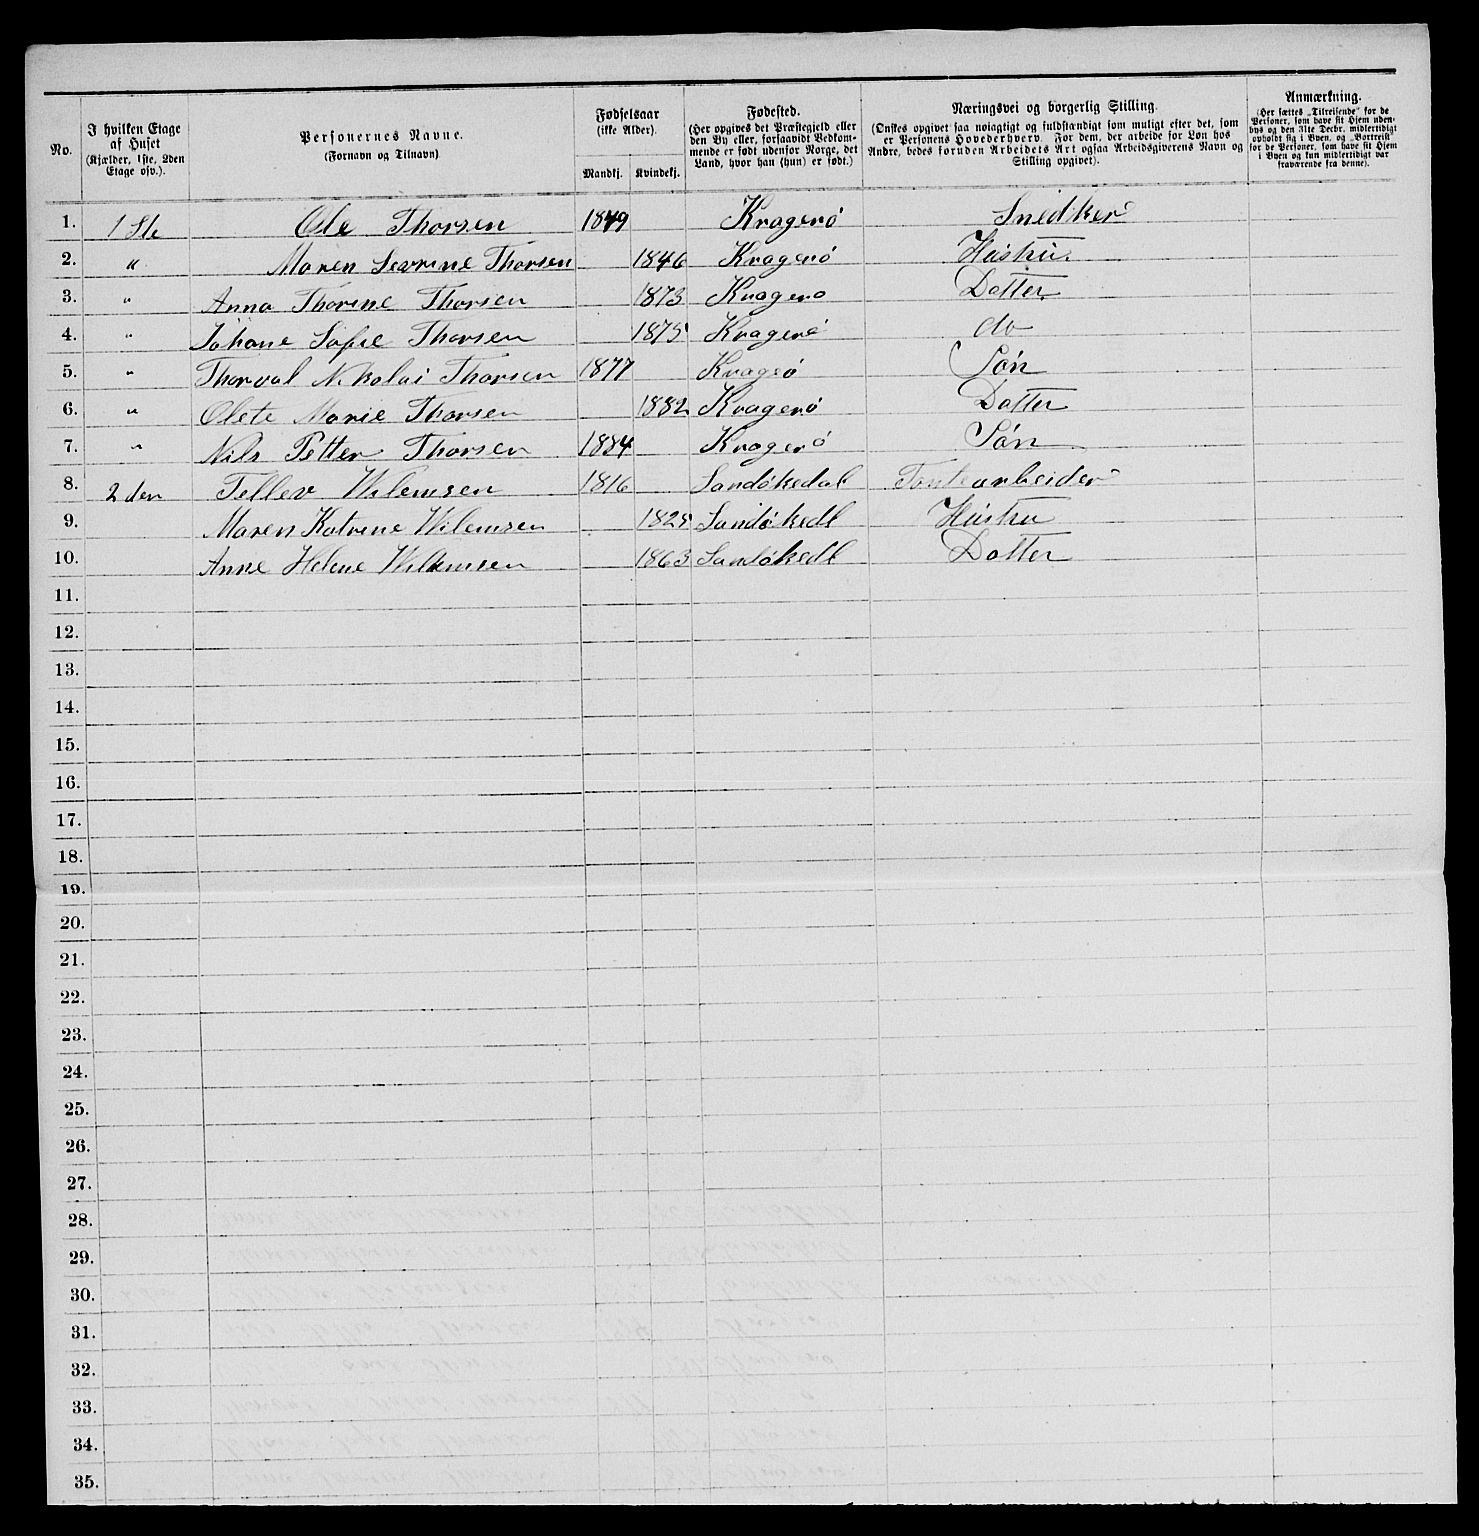 No.
I hvilken Etage af Huset (Kjælder, 1ste, 2den Etage osv.).
Personernes Navne. (Fornavn og Tilnavn)
Fødselsaar (ikke Alder).
Mandkj. Kvindekj.
Fødested. (Her opgives det Præstegjeld eller den By eller, forsaavidt Vedkommende er født udenfor Norge, det Land, hvor han (hun) er født.)
Næringsvei og borgerlig Stilling. (Ønskes opgivet saa nøiagtigt og fuldstændigt som muligt efter det, som er Personens Hovederhverv. For den, der arbeide for Løn hos Andre, bedes foruden Arbeidets Art ogsaa Arbeidsgiverens Navn og Stilling opgivet).
Anmærkning. (Her sættes „Tilreisende" for de Personer, som have sit Hjem udenbys og den 31te Decbr. midlertidigt opholdt sig i Byen, og „Bortreist" for de Personer, som have sit Hjem i Byen og kun midlertidigt var fraværende fra denne).
1. 1 Ste Ole Thorsen 1849 Kragerö Snedker
2. " Maren Sevrine Thorsen 1846 Kragerö Hustru
3. " Anna Thorine Thorsen 1873 Kragero Datter
4. " Johane Sofie Thorsen 1875 Kragerö do
5. " Thorval Nikolai Thorsen 1877 Krageö Sön
6. " Olete Marie Thorsen 1882 Kragerö Datter
7. " Nils Petter Thorsen 1884 Kragerö Sön
8. 2 den Tellev Wilemsen 1816 Sandökedal arbeider
9. Maren Katrine Wilemsen 1825 Sandökedl Hustru
10. Anne Helene Wilemsen 1863 Sandökedl Datter
11.
12.
13.
14.
15.
16.
17.
18.
19.
20.
21.
22.
23.
24.
25.
26.
27.
28.
29.
30.
31.
32.
33.
34.
35.